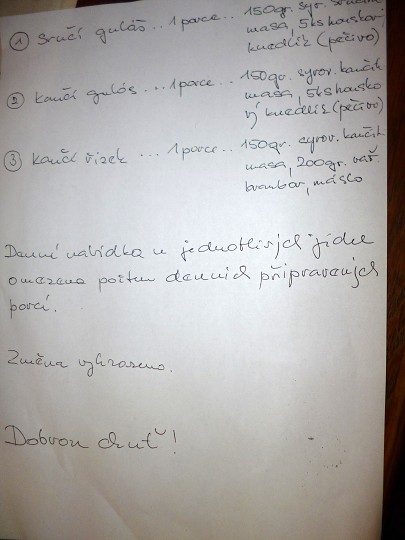 ① Srnčí guláš .. 1 porce .. 150gr. syr. srnčího
masa, 5ks houskov.
knedlík (pečivo)
② Kančí guláš ... 1 porce .. 150gr. syrov. kančík
masa, 5ks housko
vý knedlík (pečivo)
③ Kančí řízek ... 1 porce .. 150gr. syrov. kančík
masa, 200gr. vař
brambor, máslo
Denní nabídka u jednotlivých jídel
omezena počtem denních připravených
porcí.
Změna vyhrazena.
Dobrou chuť!